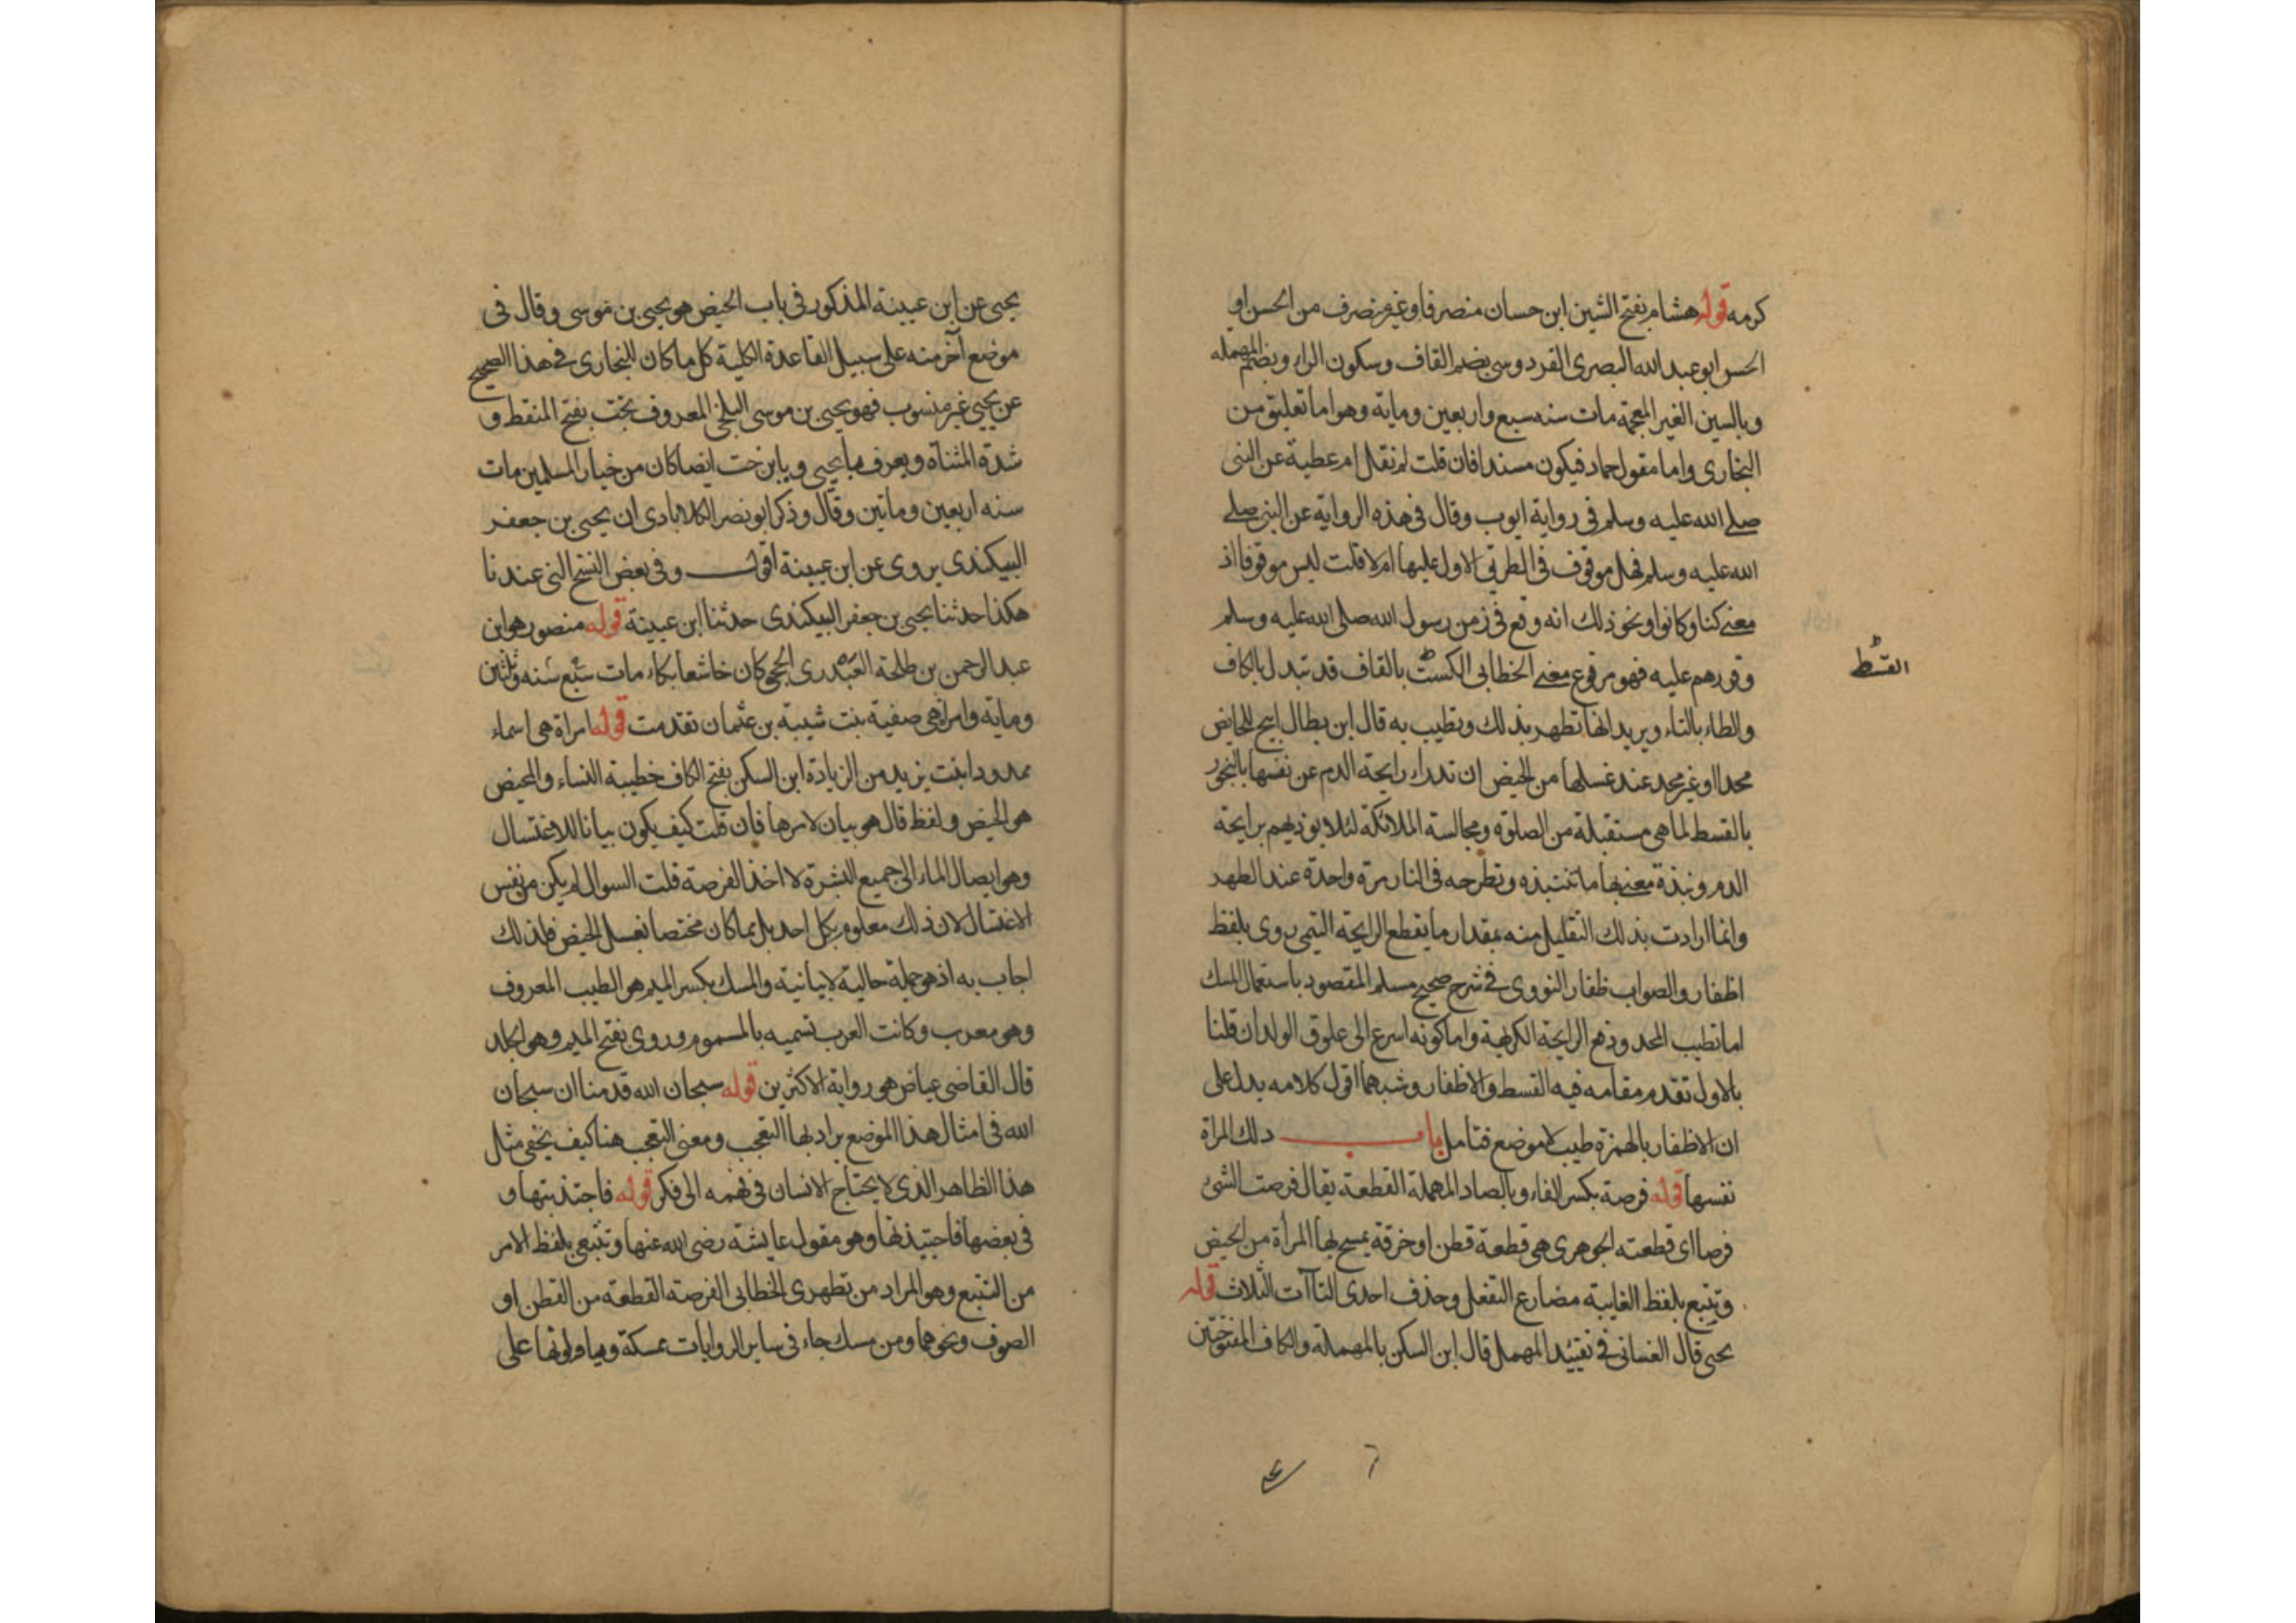 كرمه قوله هشام بفتح الشين ابن حسان منصرفا وغير منصرف من الحسن او
الحس ابو عبد الله البصرى القردوسى بضم القاف وسكون الراء وبضم المهمله
وبالسين الغير المعجمة مات سنه سبع واربعين وماية وهو اما تعليق من
البخارى واما مقول حماد فيكون مسندا فان قلت لم نقل ام عطية عن النبى
صلے الله عليه وسلم فى رواية ايوب وقال فى هذه الرواية عن النبى صلے
الله عليه وسلم فهل موقوف فى الطريق الاول عليها ام لا قلت ليس موقوفا اذ
معنے كنا وكانوا ونحو ذلك انه وقع فى زمن رسول الله صلى الله عليه وسلم
وقررهم عليه فهو مرفوع معنے الخطابى الكست بالقاف قد تبدل بالكاف
القسط
والطاء بالتاء ويريد انها تطهر بذلك وتطيب به قال ابن بطال ابيح للحايض
محدا او غير محد عند غسلها من الحيض ان تدراء رايحة الدم عن نفسها بالبخور
بالقسط لما هى مستقبلة من الصلوة ومجالسة الملائكة لئلا يوذيهم برايحة
الدم ونبذة معنے بها ما تنتبذه وتطرحه فى النار مرة واحدة عند الطهر
وانما ارادت بذلك التقليل منه بمقدار ما يقطع الرايحة التيمى روى بلفظ
اظفار والصواب ظفار النووى فى شرح صحيح مسلم المقصود باستعمال المسك
اما تطيب المحد ودفع الرايحة الكريهة واما كونه اسرع الى علوق الولد ان قلنا
بالاول تقدم مقامه فيه القسط والاظفار وشبههما اقول كلامه يدل على
ان الاظفار بالهمزة طيب لا موضع فتامل باب دلك المراة
نفسها قوله فرصة بكسر الفاء وبالصاد المهملة القطعة يقال فرصت الشئ
فرصا اى قطعته الجوهرى هى قطعة قطن او خرقة يمسح بها المرأة من الحيض
وتتبع بلفظ الغايبة مضارع التفعل وحذف احدى التاآت الثلاث قوله
يحيى قال الغسانى فى تقييد المهمل قال ابن السكن بالمهملة والكاف المفتوحتين
يحيى عن ابن عيينة المذكور فى باب الحيض هو يحيى بن موسى وقال فى
موضع آخر منه على سبيل القاعدة الكلية كل ما كان للبخارى فى هذا الصحيح
عن يحيى غير منسوب فهو يحيى بن موسى البلخى المعروف بخت بفتح المنقط و
شدة المثناة ويعرف بابن يحيى وبابن خت ايضا كان من خيار المسلمين مات
سنه اربعين وماتين وقال وذكر ابو نصر الكلاباذى ان يحيى بن جعفر
البيكندى يروى عن ابن عيينة اقول وفى بعض النسخ التى عندنا
هكذا حدثنا يحيى بن جعفر البيكندى حدثنا ابن عيينة قوله منصور هو ابن
عبد الرحمن بن طلحة العبدرى الحجبى كان خاشعا بكاء مات سنه سبع وثلثين
وماية وامراة هى صفية بنت شيبة بن عثمان تقدمت قوله امراة هى اسماء
ممدودا بنت يزيد من الزيادة ابن السكن بفتح الكاف خطيبة النساء والمحيض
هو الحيض ولفظ قال هو بيان لامرها فان قلت كيف يكون بيانا للاغتسال
وهو ايصال الماء الى جميع البشرة لا اخذ الفرصة قلت السوال لم يكن من نفس
الاغتسال لان ذلك معلوم بكل احد بل بما كان مختصا بغسل الحيض فلذلك
اجاب به اذ هو جملة حالية لا بيانية والمسك بكسر الميم هو الطيب المعروف
وهو معرب وكانت العرب تسميه بالمسموم وروى بفتح الميم وهو الجلد
قال القاضى عياض هو رواية الاكثرين قوله سبحان الله قدمنا ان سبحان
الله فى امثال هذا الموضع يراد لها التعجب ومعنى التعجب هنا كيف يخفى مثل
هذا الظاهر الذى لا يحتاج الانسان فى فهمه الى فكر قوله فاجتذبتها و
فى بعضها فاجتبذتها وهو مقول عايشة رضى الله عنها وتتبعى بلفظ الامر
من التتبع وهو المراد من تطهرى الخطابى الفرصة القطعة من القطن او
الصوف ونحوهما ومن مسك جاء فى ساير الروايات ممسكة وتاولونها على